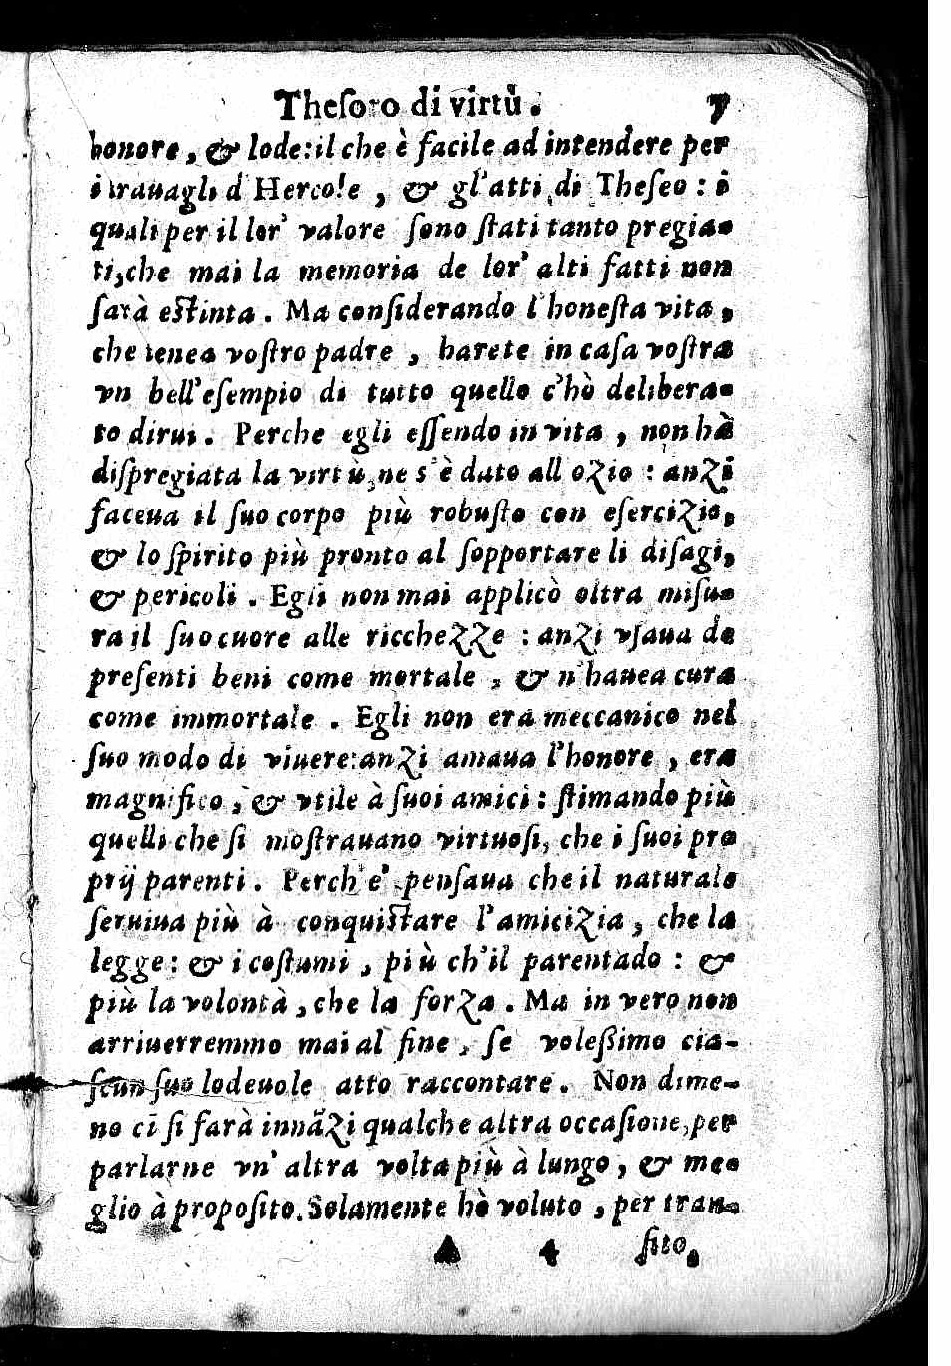 Theſoro di virtù. 7
honore, & lode: il che è facile ad intendere per
i trauagli d'Hercole, & gl'atti di Theſeo: i
quali per il lor' valore ſono ſtati tanto pregia-
ti, che mai la memoria de lor' alti fatti non
ſarà eſtinta. Ma conſiderando l'honeſta vita,
che tenea voſtro padre, harete in caſa voſtra
vn bell'eſempio di tutto quello c'hò delibera-
to dirui. Perche egli eſſendo in vita, non hà
diſpregiata la virtù, ne s'è dato all ozio: anzi
faceua il ſuo corpo più robuſto con eſercizio,
& lo ſpirito più pronto al ſopportare li diſagi,
& pericoli. Egli non mai applicò oltra miſu-
ra il ſuo cuore alle ricchezze: anzi vſaua de
preſenti beni come mortale, & n'hauea cura
come immortale. Egli non era meccanico nel
ſuo modo di viuere: anzi amaua l'honore, era
magnifico, & vtile à ſuoi amici: ſtimando più
quelli che ſi moſtrauano virtuoſi, che i ſuoi pro
prij parenti. Perch'e' penſaua che il naturale
ſeruiua più à conquiſtare l'amicizia, che la
legge: & i coſtumi, più ch'il parentado: &
più la volontà, che la forza. Ma in vero non
arriuerremmo mai al fine, ſe voleßimo cia-
ſcun ſuo lodeuole atto raccontare. Non dime-
no ci ſi farà innãzi qualche altra occaſione, per
parlarne vn' altra volta più à lungo, & me-
glio à propoſito. Solamente hò voluto, per tran-
A 4 ſito,